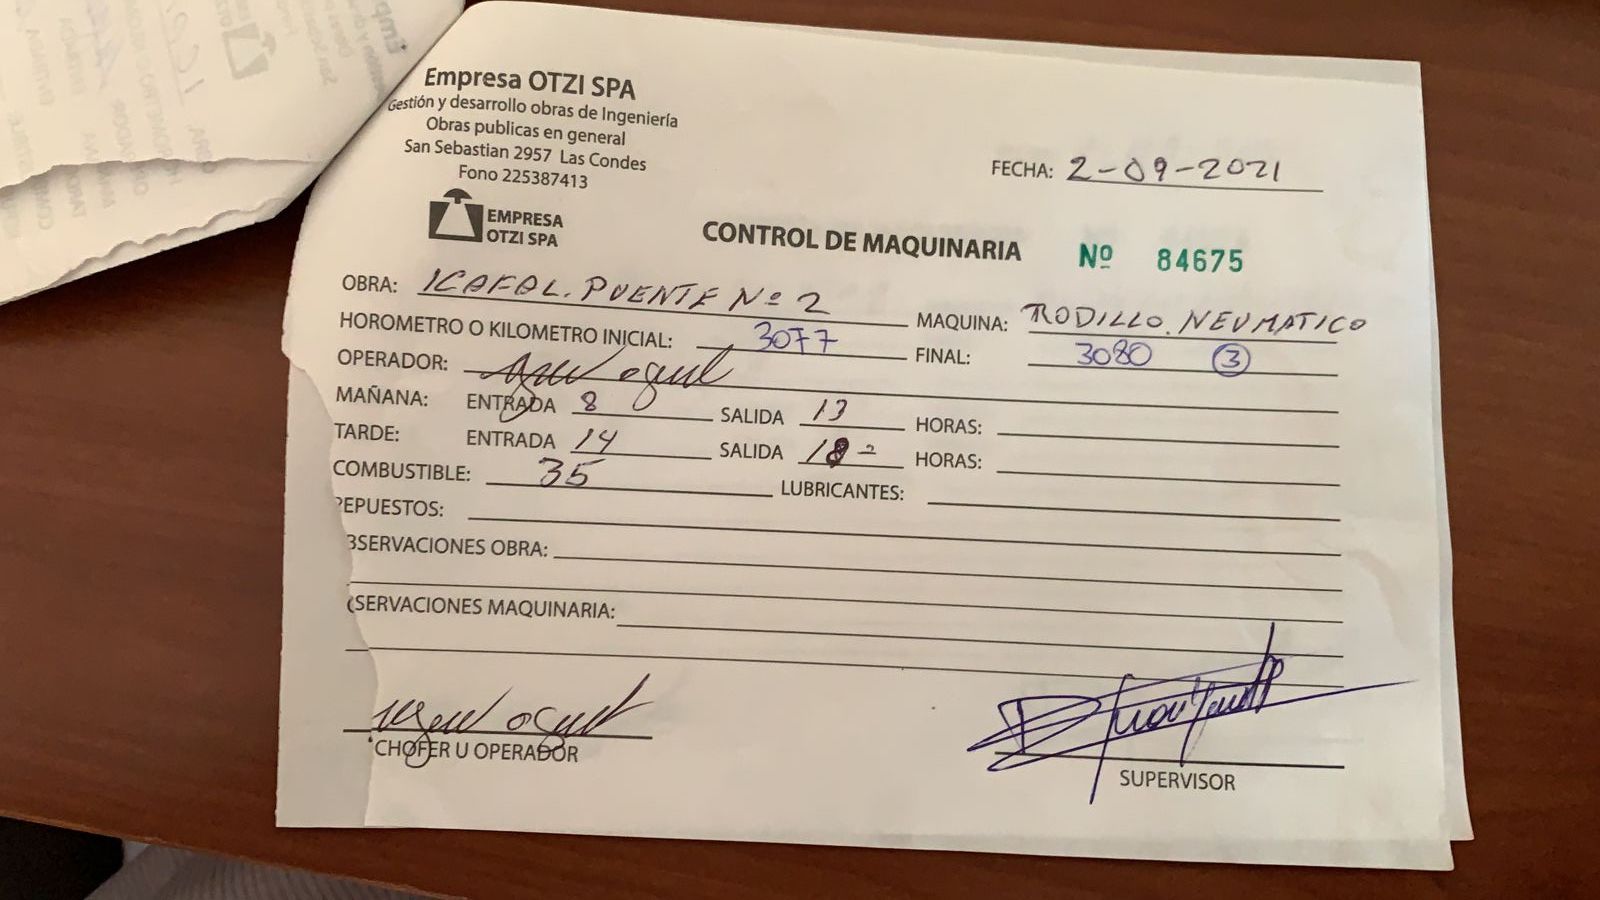 Empresa OTZI SPA
Gestión y desarrollo obras de Ingeniería
Obras publicas en general
San Sebastian 2957 Las Condes
Fono 225387413
FECHA: 2-09-2021
EMPRESA
OTZI SPA
CONTROL DE MAQUINARIA Nº 84675
OBRA: ICAFAL. PUENTE Nº 2 MAQUINA: RODILLO. NEUMATICO
HOROMETRO O KILOMETRO INICIAL: 3077 FINAL: 3080 3
OPERADOR:
MAÑANA: ENTRADA 8 SALIDA 13 HORAS:
TARDE: ENTRADA 14 SALIDA 18 HORAS:
COMBUSTIBLE: 35 LUBRICANTES:
REPUESTOS:
BSERVACIONES OBRA:
SERVACIONES MAQUINARIA:
CHOFER U OPERADOR
SUPERVISOR